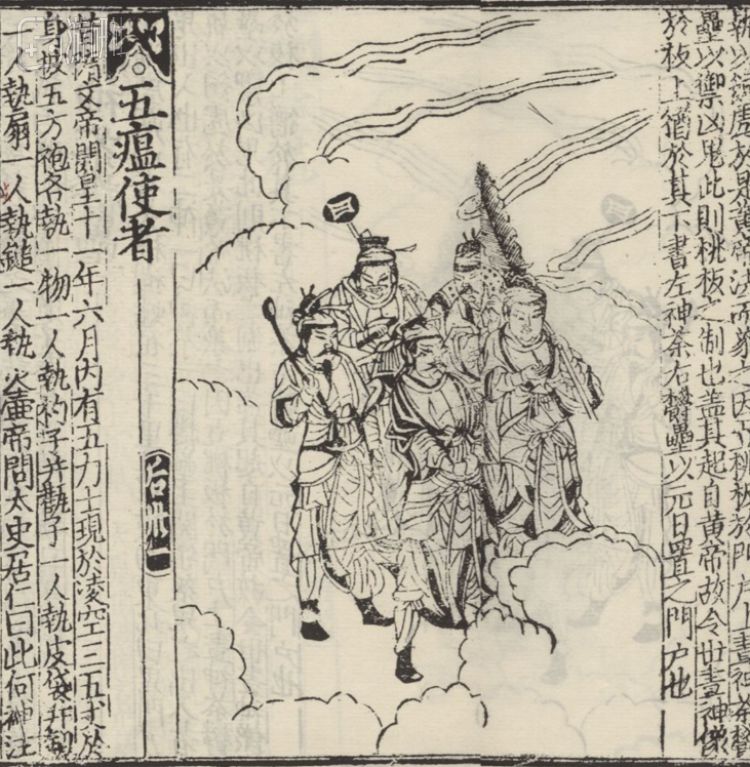 以飼虎於是黃帝法而象之因立桃板於門戶上畫神荼鬱
壘以禦凶鬼此則桃板之制也蓋其起自黃帝故今世畫神像
於板上猶於其下書左神荼右鬱壘以元日置之門戶也
五瘟使者
昔隋文帝開皇十一年六月內有五力士現於凌空三五丈於
身披五方袍各執一物一人執杓子并罐子一人執皮袋并劍
一人執扇一人執鎚一人執火壺帝問太史居仁曰此何神